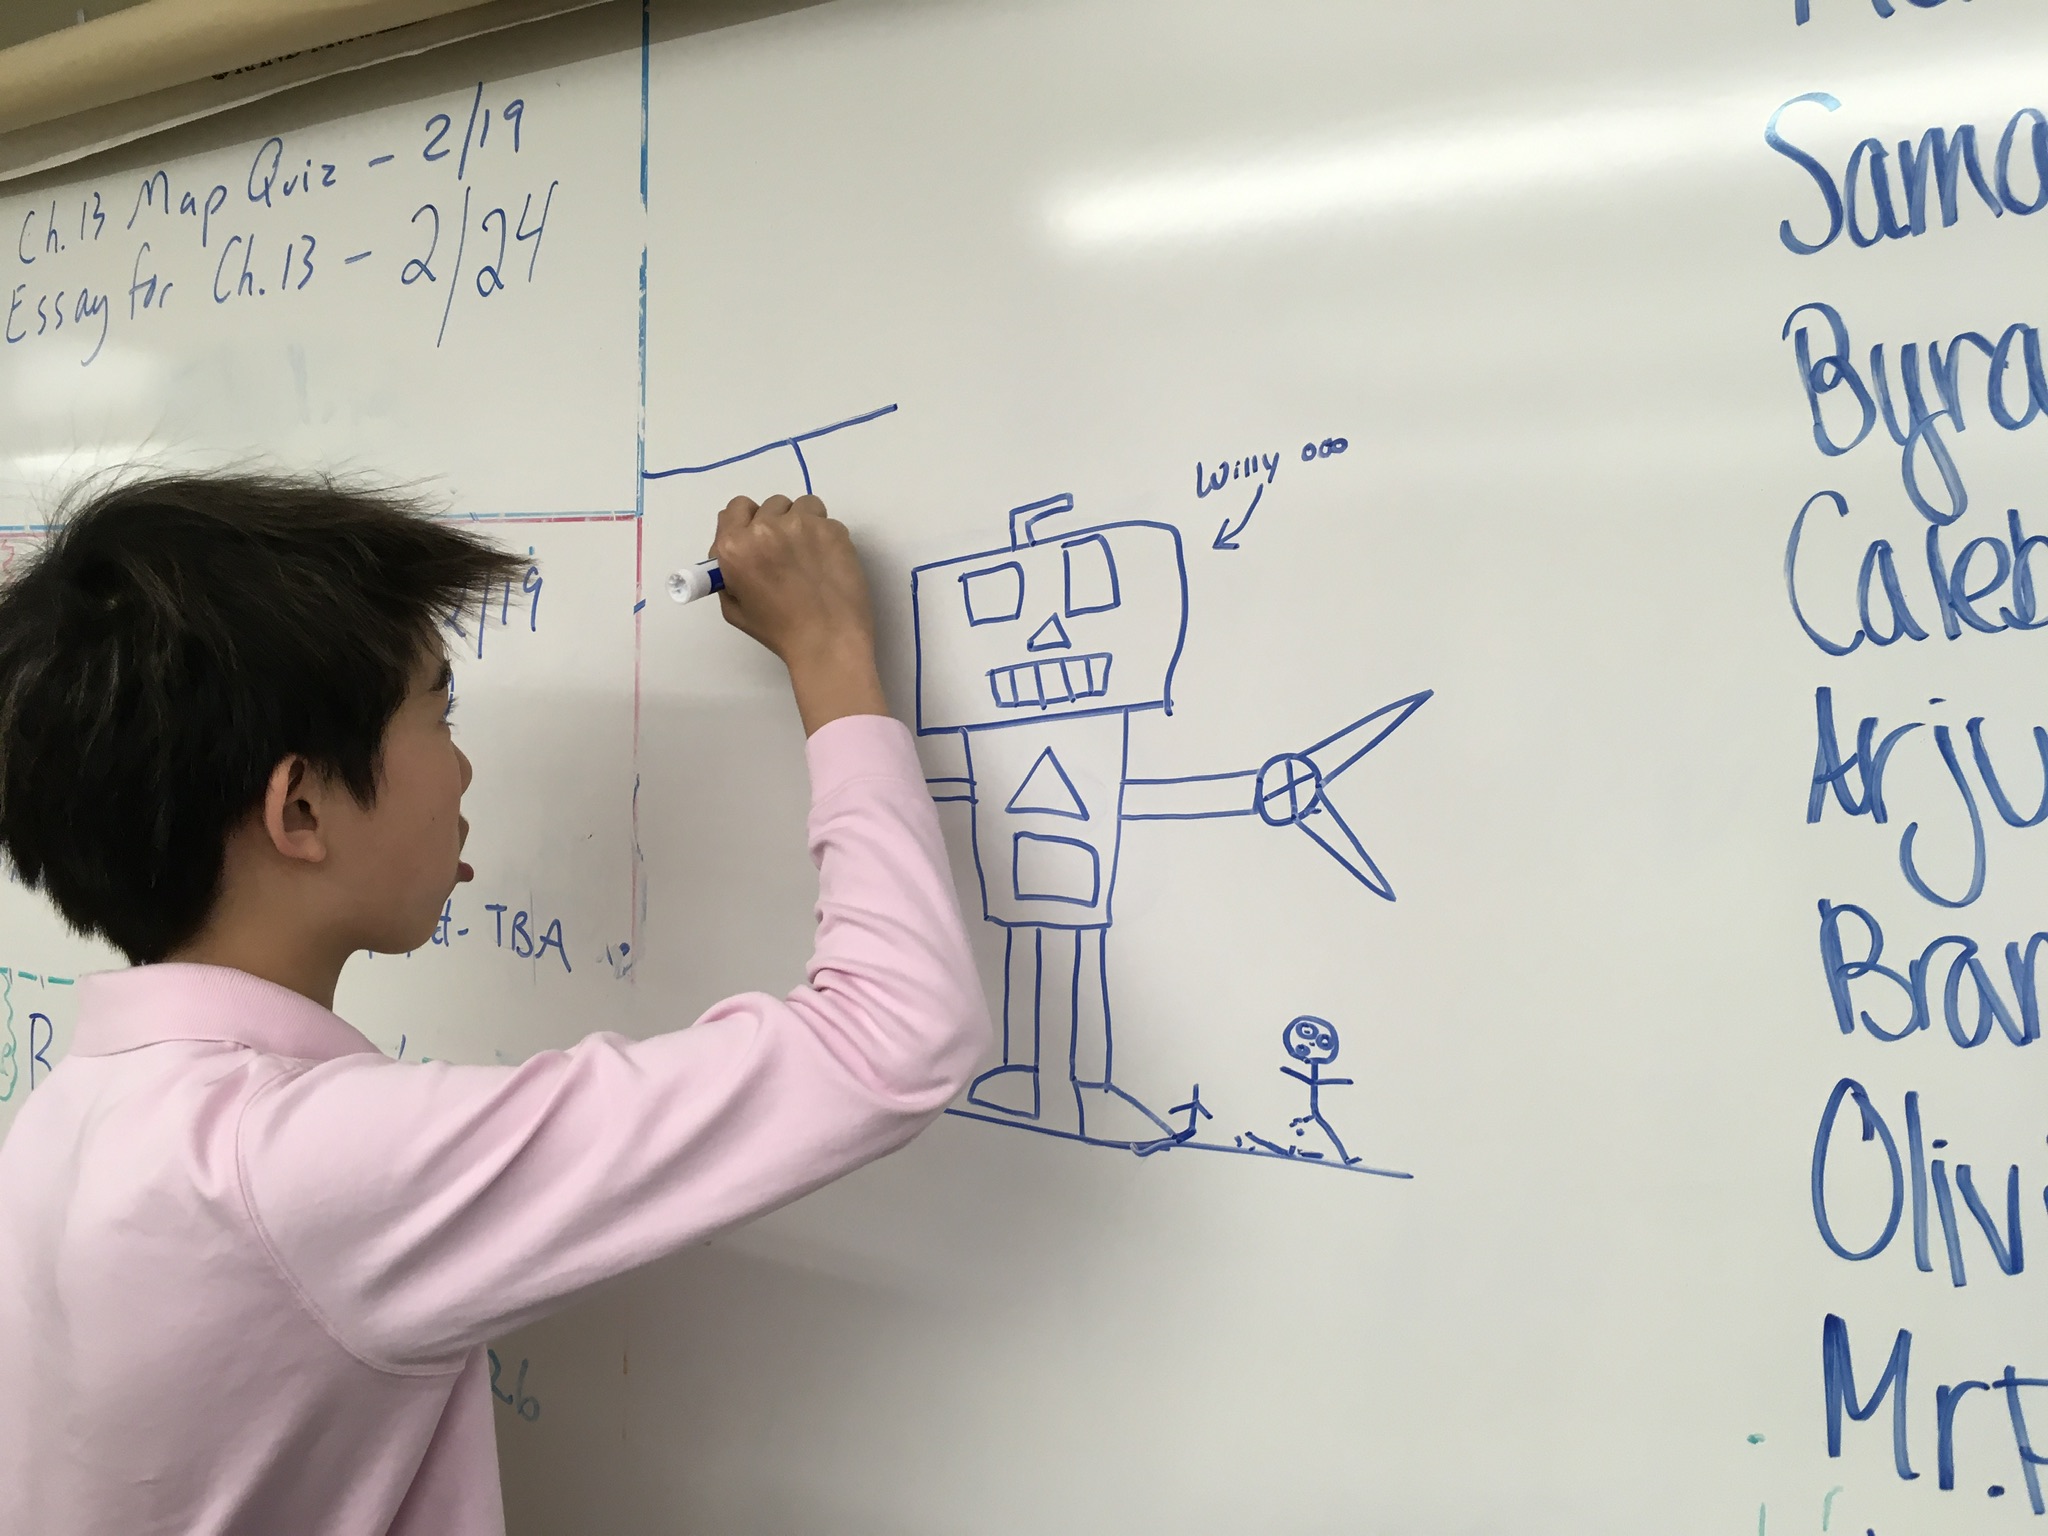 Ch.13 Map Quiz - 2/19
Essay for Ch.13 - 2/24
/19
- TBA
B
26
Willy ooo
Sama
Byra
Caleb
Arju
Bran
Olivi
Mr.